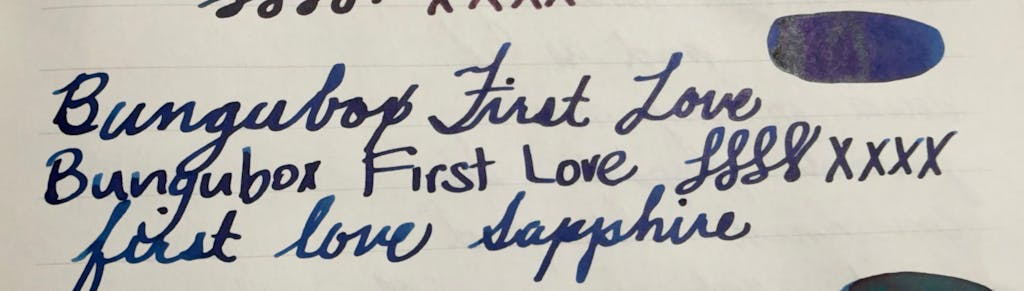 Bungubox First Love
Bungubox First Love XXXX
first love sapphire